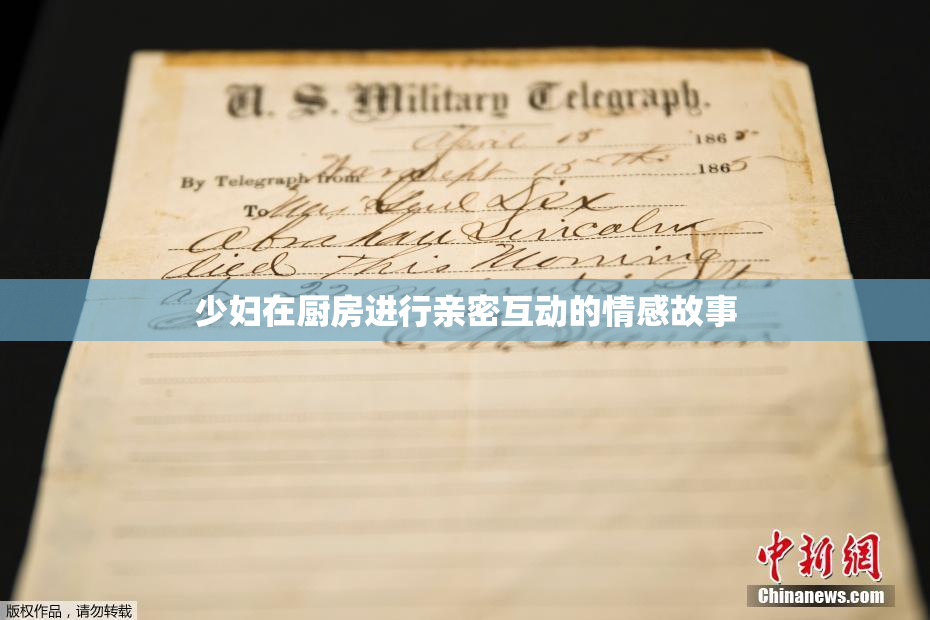 U. S. Military Telegraph.
April 15 1865
By Telegraph from War Dept 15th 1865
To Maj Genl Dix
Abraham Lincoln
died This Morning
at 22 minutes after
少妇在厨房进行亲密互动的情感故事
E. M. Stanton
中新網
Chinanews.com
版权作品，请勿转载